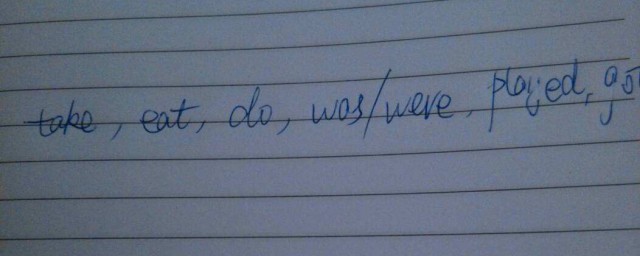 take, eat, do, was/were, played, go